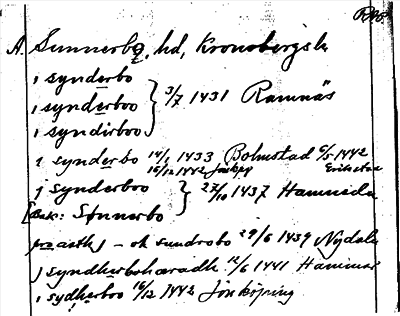 A. Sunnerbo, hd, Kronobergs l.
i synderbo
i synderboo } 3/7 1431 Ramnäs
i syndirboo
i synderbo 14/1 1433 Bolmstad 6/5 1442
16/12 1442 Jönköp
j synderboo } 27/10 1437 Hamneda
Bak: Sunnerbo
j - ok sundrobo 29/6 1439 Nydala
j syndherbohæradh 12/6 1441 Hammar
i sydherboo 16/12 1442 Jönköping